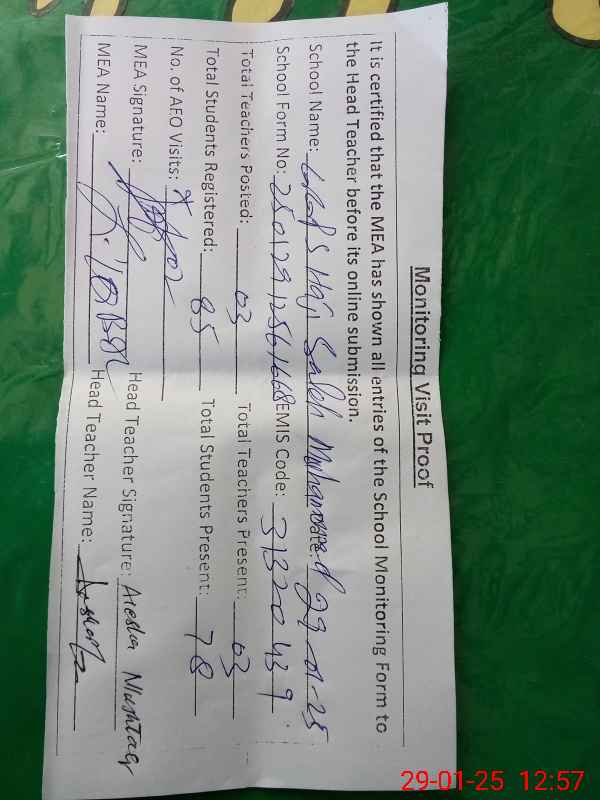 Monitoring Visit Proof
It is certified that the MEA has shown all entries of the School Monitoring Form to
the Head Teacher before its online submission.
School Name: GGPS Haji Saleh Muhammad Date: 29-01-25
School Form No: 250129125616 68 EMIS Code: 31320439
Total Teachers Posted: 03 Total Teachers Present: 03
Total Students Registered: 85 Total Students Present: 78
No. of AEO Visits:
MEA Signature: Head Teacher Signature: Ayesha Mushtaq
MEA Name: Head Teacher Name:
29-01-25 12:57